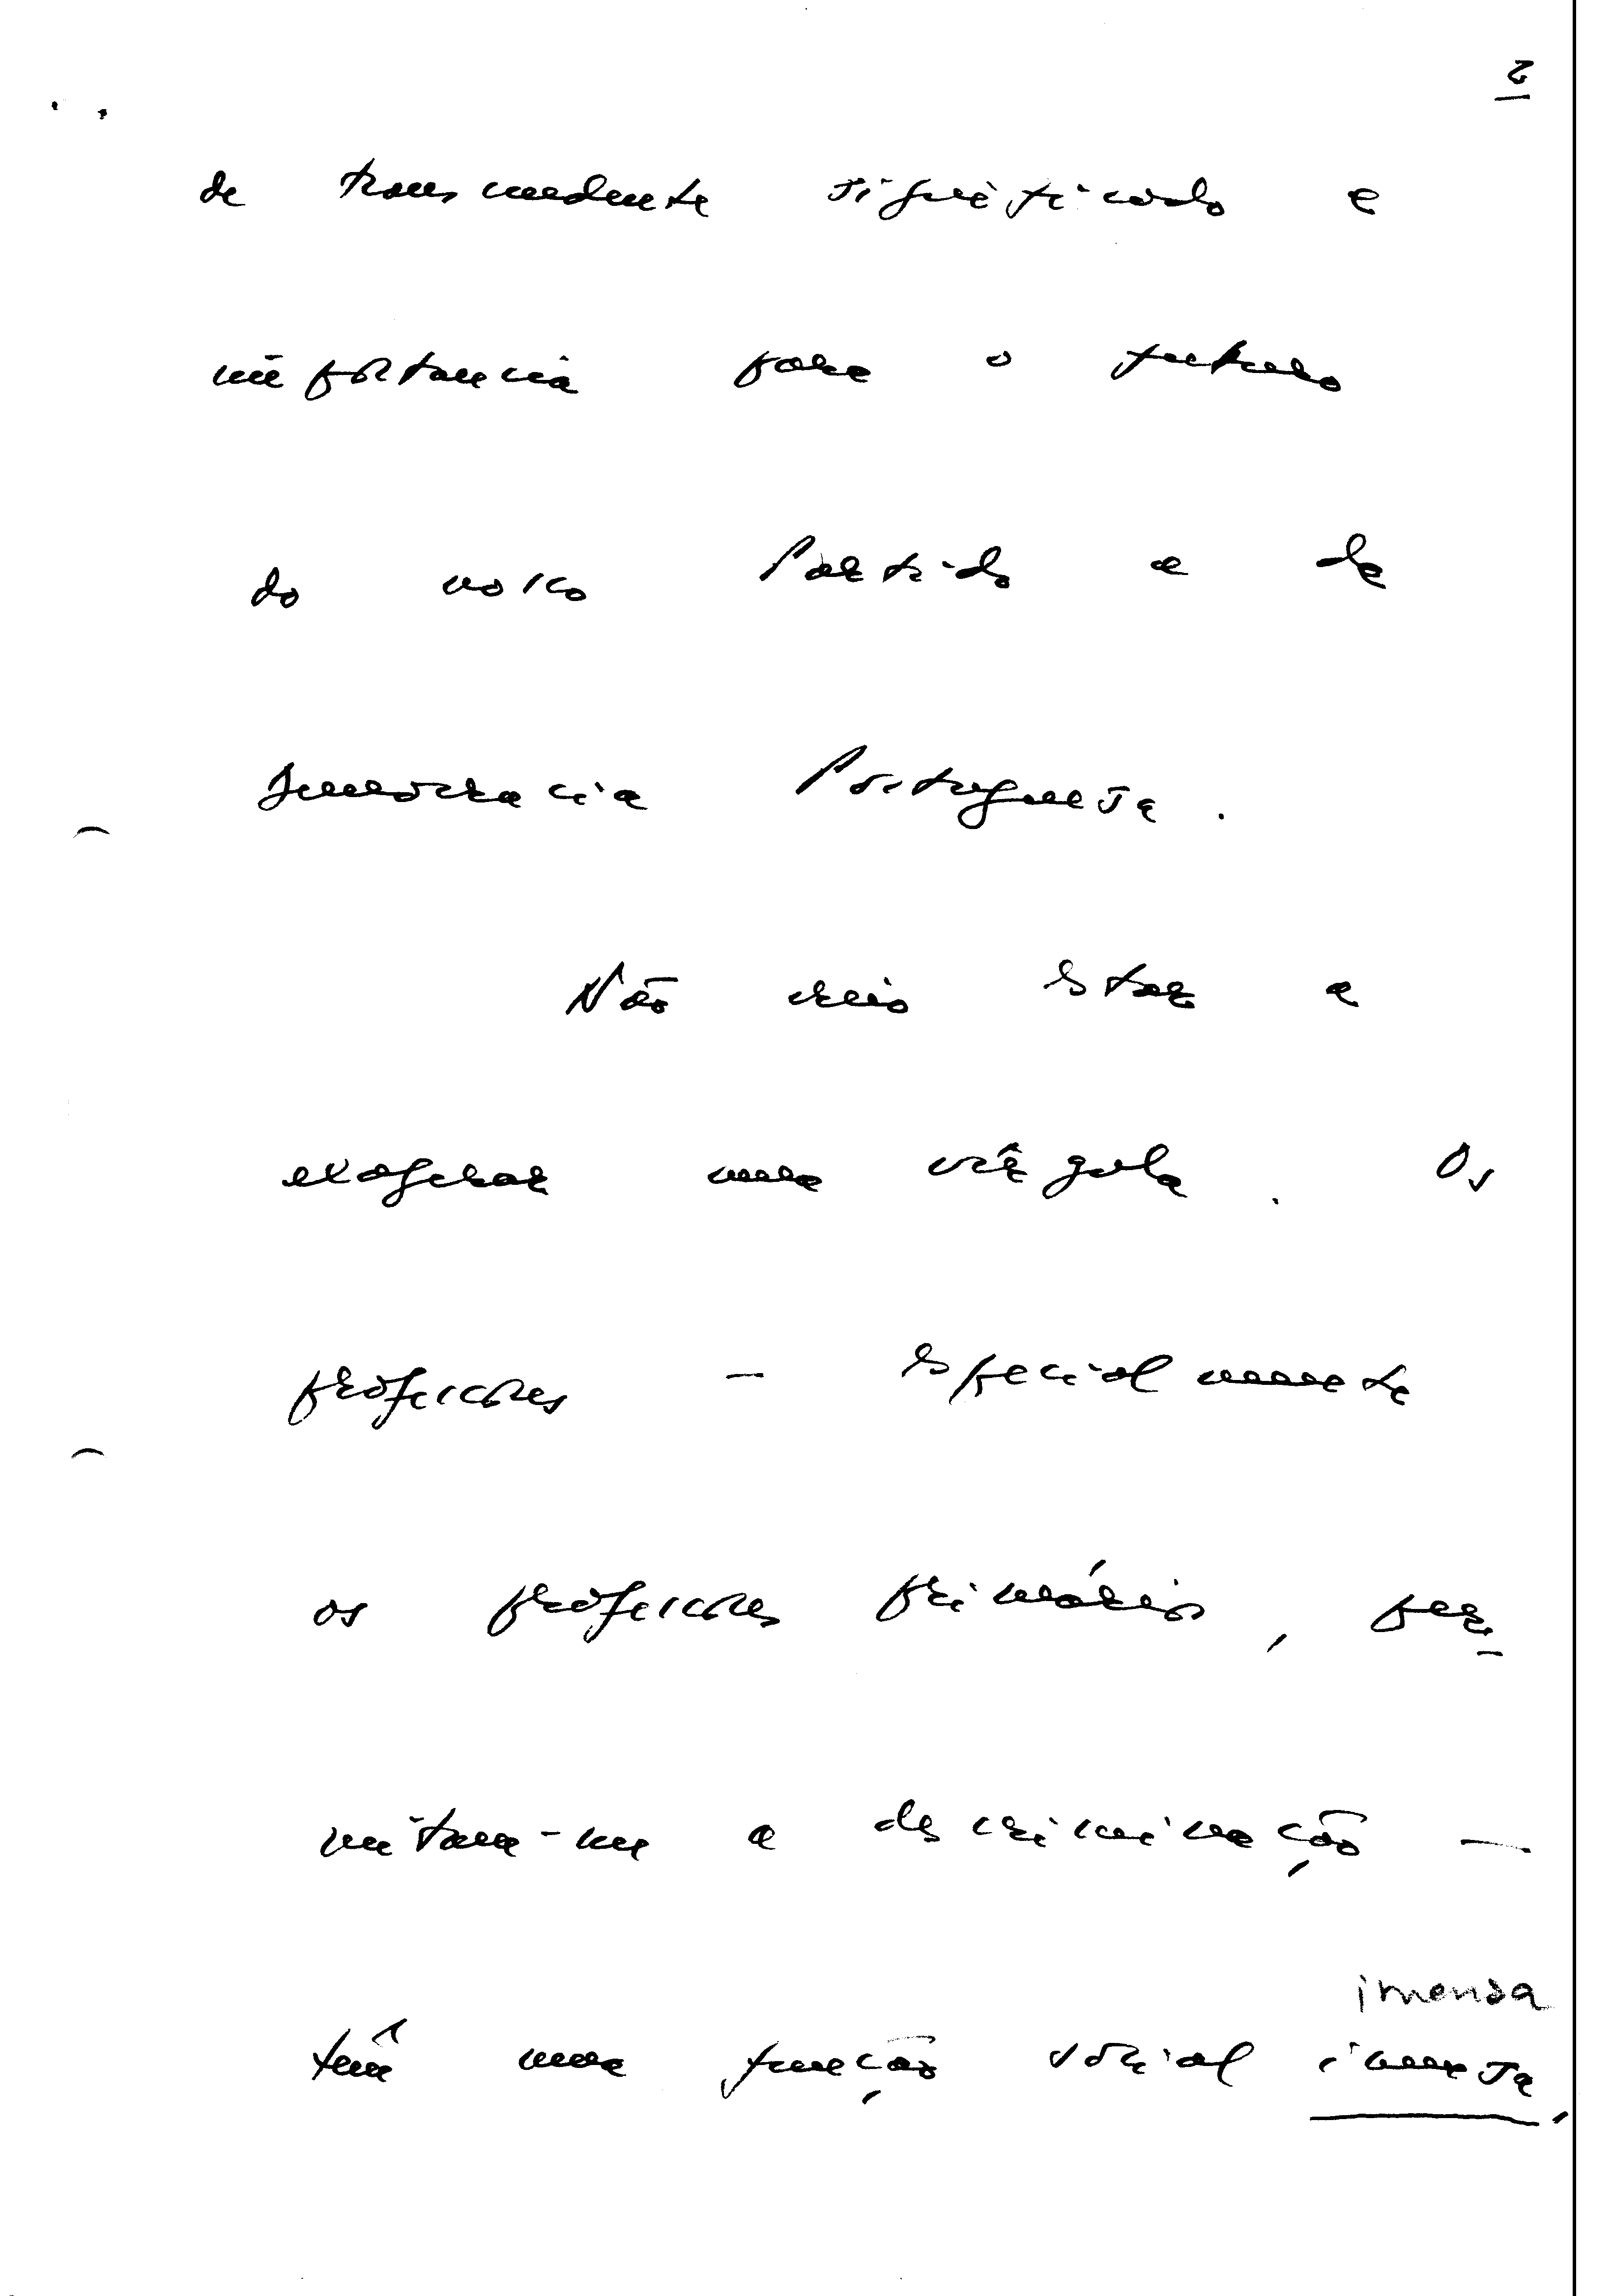 2
de transcendente significado e
importancia para o futuro
do nosso Partido e da
Democracia Portuguesa.
Não creio estar a
exagerar uma vírgula. Os
professores — especialmente
os professores primários, per-
mitam-me a descriminação —
imensa
têm uma função social imensa,